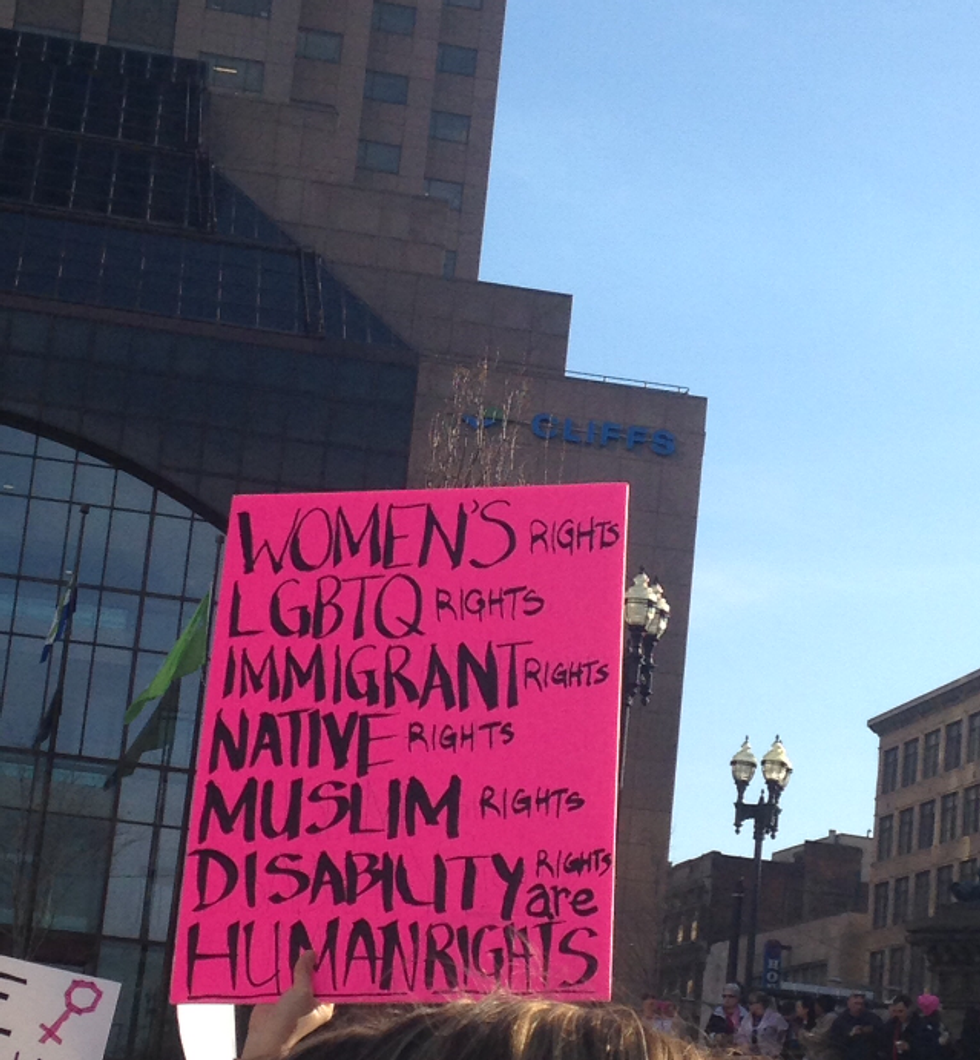 CLIFFS
WOMEN'S RIGHTS
LGBTQ RIGHTS
IMMIGRANT RIGHTS
NATIVE RIGHTS
MUSLIM RIGHTS
DISABILITY RIGHTS
are
HUMAN RIGHTS
HO